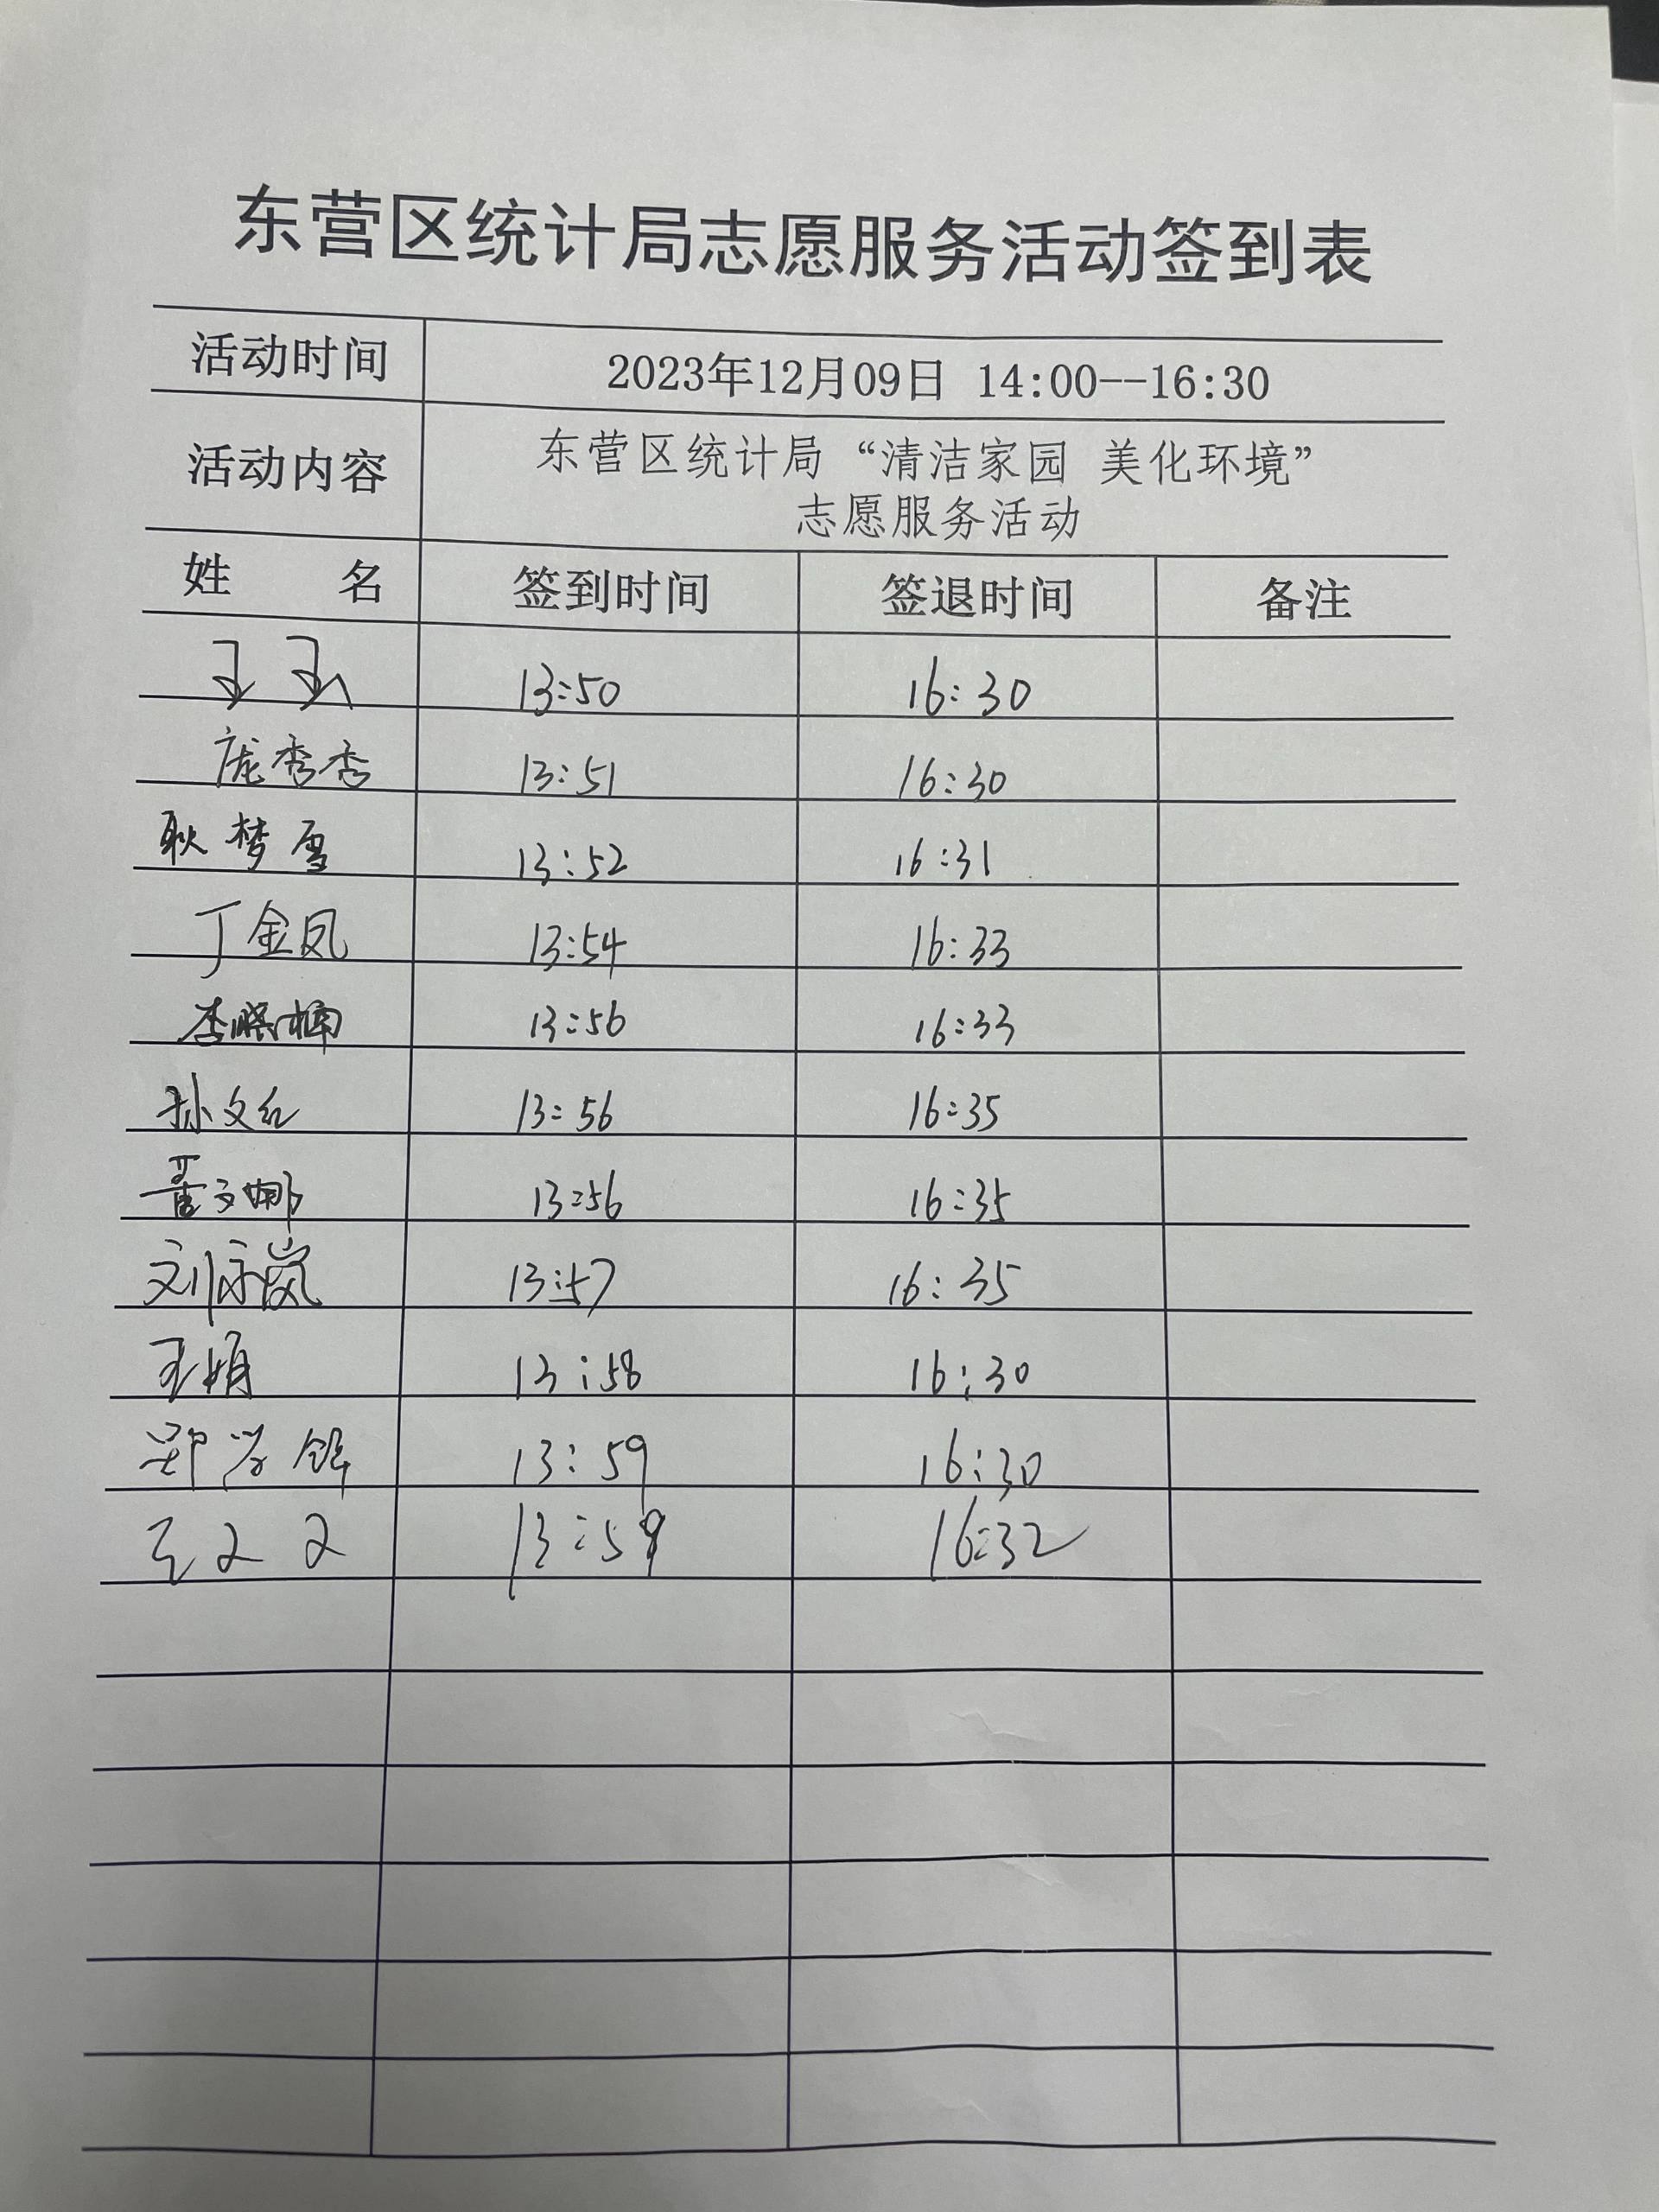 东营区统计局志愿服务活动签到表
活动时间 2023年12月09日 14:00--16:30
活动内容 东营区统计局“清洁家园 美化环境”
志愿服务活动
姓 名 签到时间 签退时间 备注
13:50 16:30
庞秀秀 13:51 16:30
耿梦雪 13:52 16:31
丁金凤 13:54 16:33
李晓楠 13:56 16:33
孙文红 13:56 16:35
董文娜 13:56 16:35
刘永岚 13:57 16:35
王娟 13:58 16:30
郑学 13:59 16:30
13:59 16:32